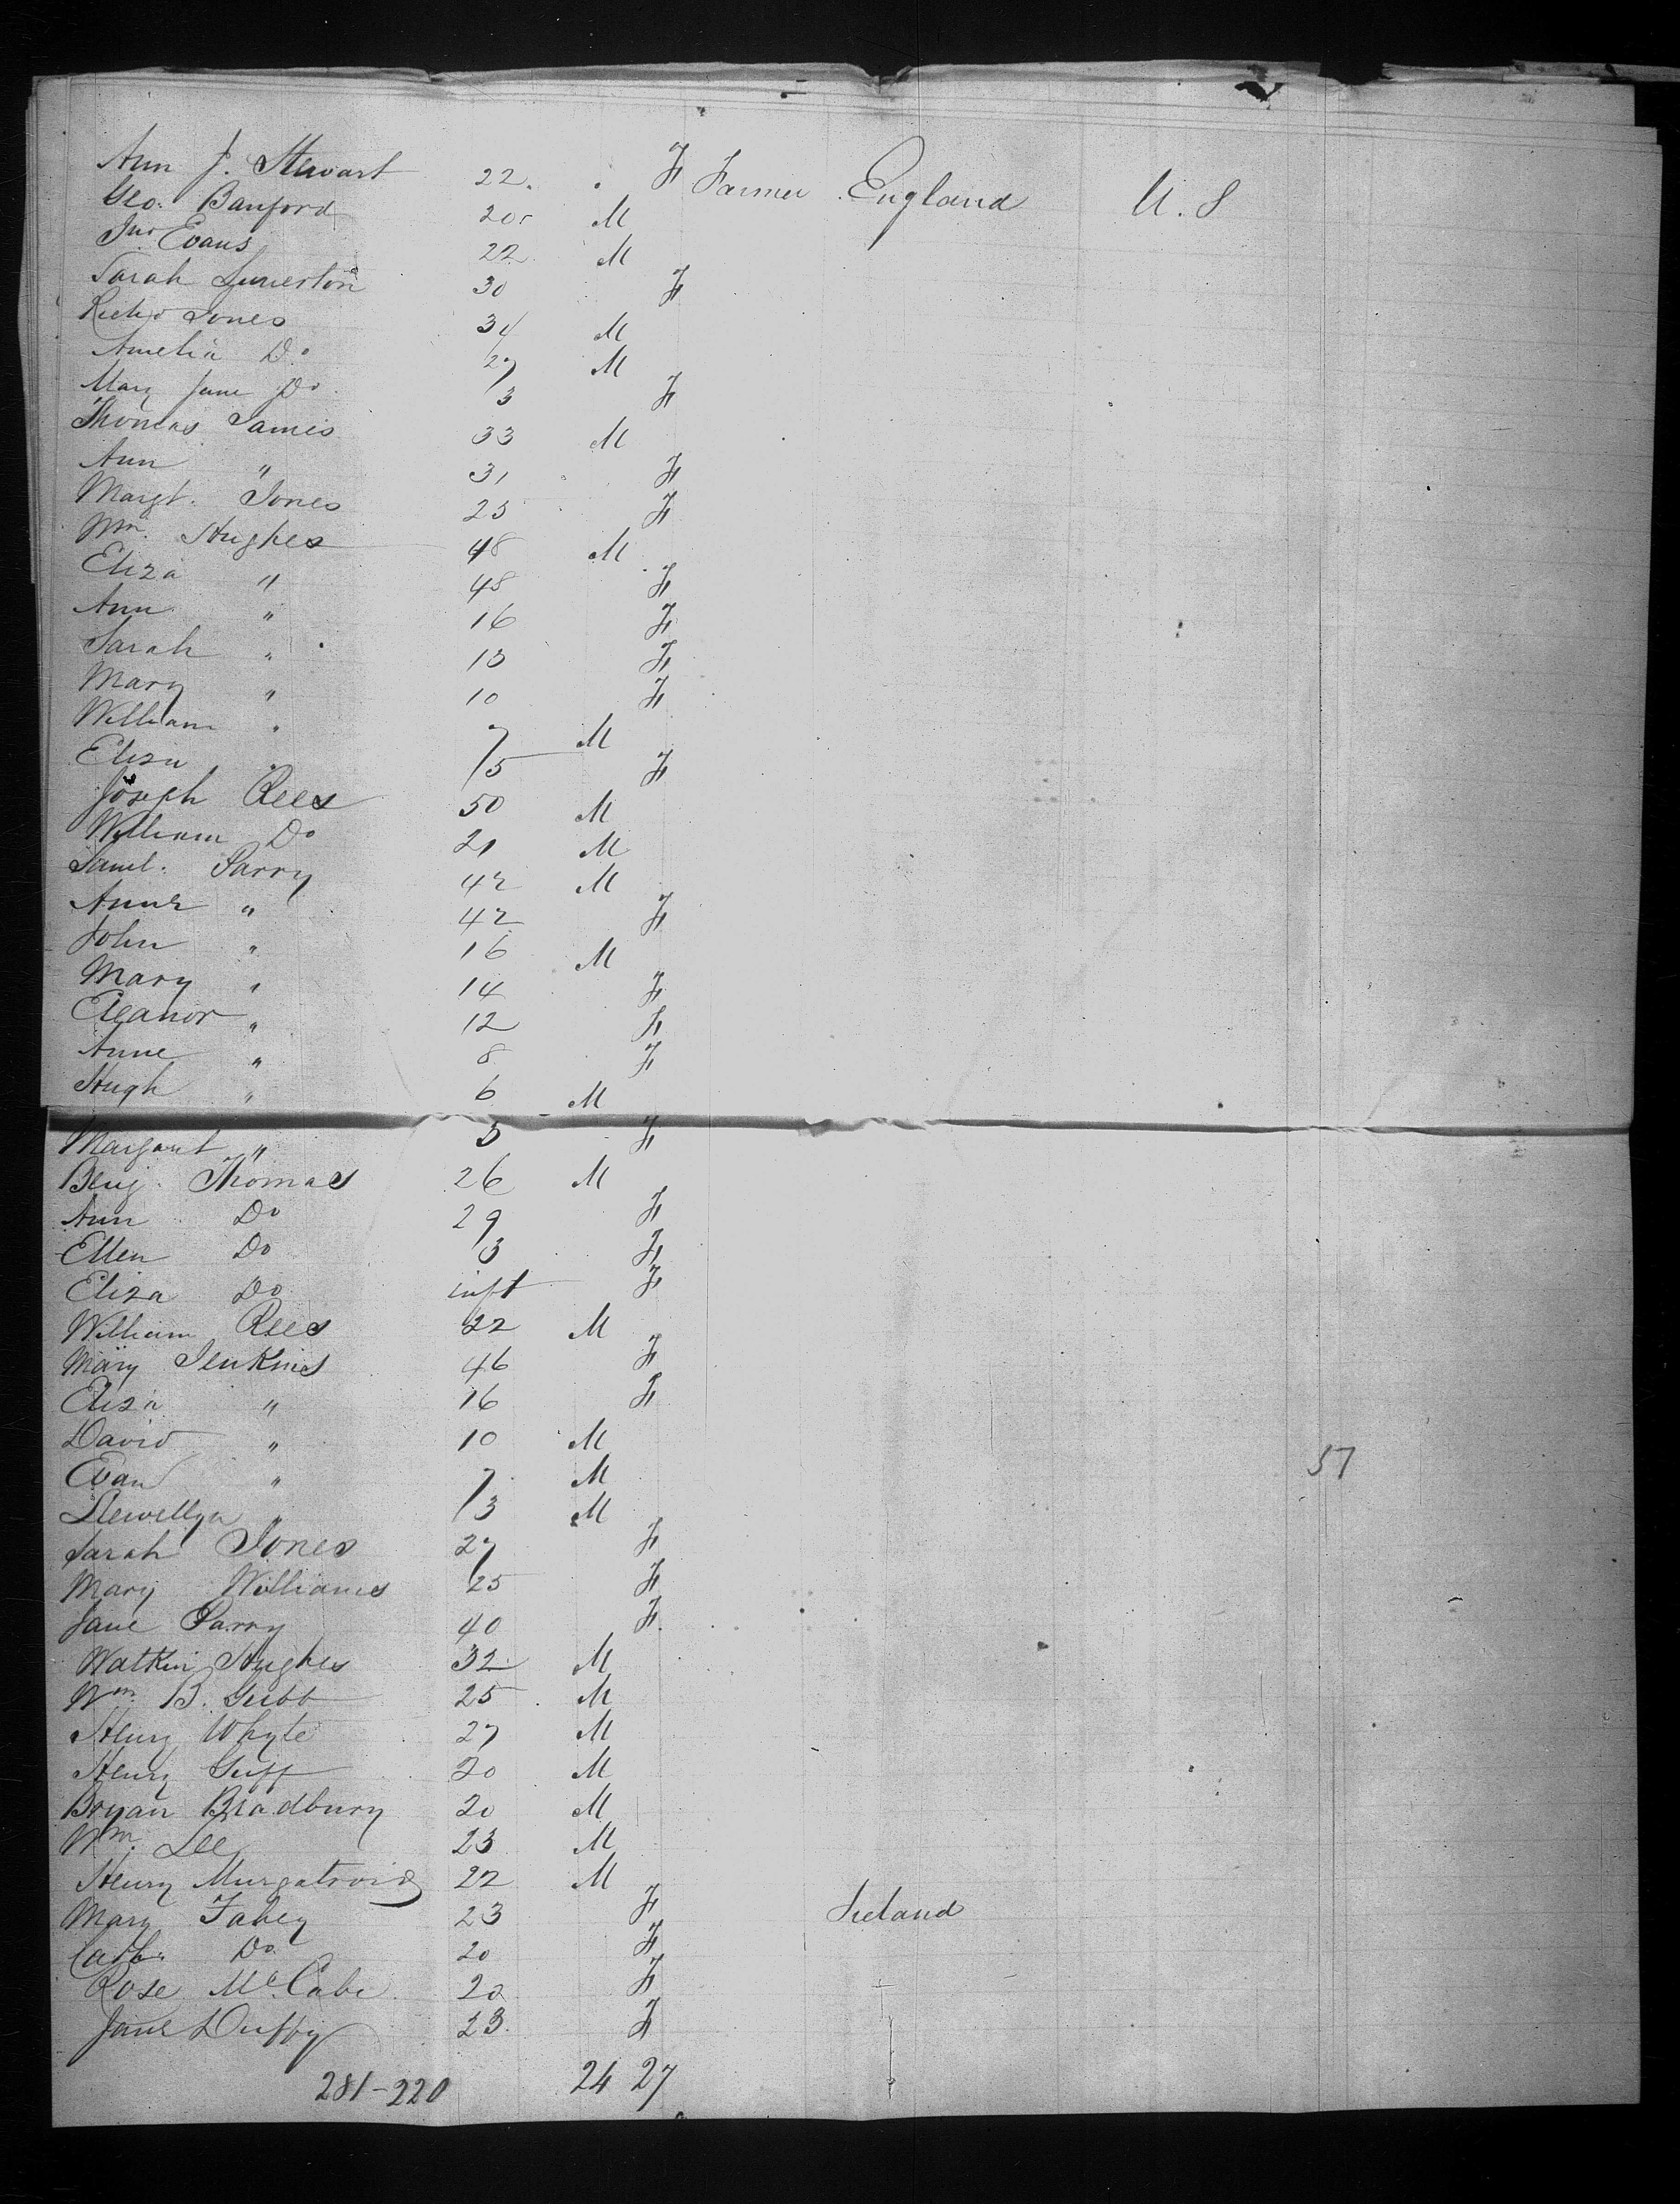 Ann J. Stewart 22. F Farmer England U.S
Geo. Banford 20 M
Jno Evans 22 M
Sarah 30 F
Richd Jones 34 M
Amelia Do 27 M
Mary Jane Do 3 F
Thomas James 33 M
Ann " 31 F
Margt. Jones 25 F
Wm. Hughes 48 M
Eliza " 48 F
Ann " 16 F
Sarah " 13 F
Mary " 10 F
William " 7 M
Eliza " 5 F
Joseph Rees 50 M
William Do 21 M
Saml. Parry 42 M
Anne " 42 F
John " 16 M
Mary " 14 F
Eleanor " 12 F
Anne " 8 F
Hugh " 6 M
Margaret " 5 F
Benj. Thomas 26 M
Ann Do 29 F
Ellen Do 3 F
Eliza Do inft F
William Rees 22 M
Mary Jenkins 46 F
Eliza " 16 F
David " 10 M
Evan " 7 M 57
Llewellyn " 3 M
Sarah Jones 27 F
Mary Williams 25 F
Jane Parry 40 F
Watkin Hughes 32 M
Wm. B. Gubb 25 M
Henry Whyte 27 M
Henry 20 M
Bryan Bradbury 20 M
Wm. Lee 23 M
Henry Murgatroid 22 M
Mary Fahey 23 F Ireland
Cath. Do 20 F
Rose McCabe 20 F
Jane Duffy 23 F
281-220 24 27